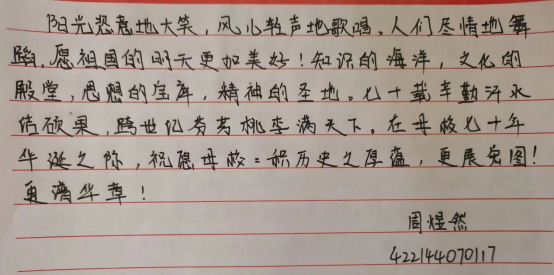 阳光恣意地大笑，风儿轻声地歌唱，人们尽情地舞
蹈，愿祖国的明天更加美好！知识的海洋，文化的
殿堂，思想的宝库，精神的圣地。七十载辛勤汗水
结硕果，跨世纪芬芳桃李满天下。在母校七十年
华诞之际，祝愿母校：积历史之厚蕴，更展宏图！
更谱华章！
周煜然
422144070117